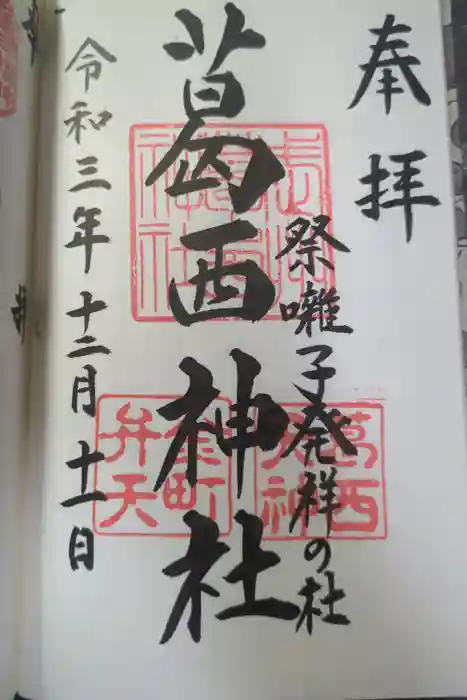 奉拝
祭囃子発祥の社
葛西神社
令和三年十二月十一日
葛西
天神
金町
弁天